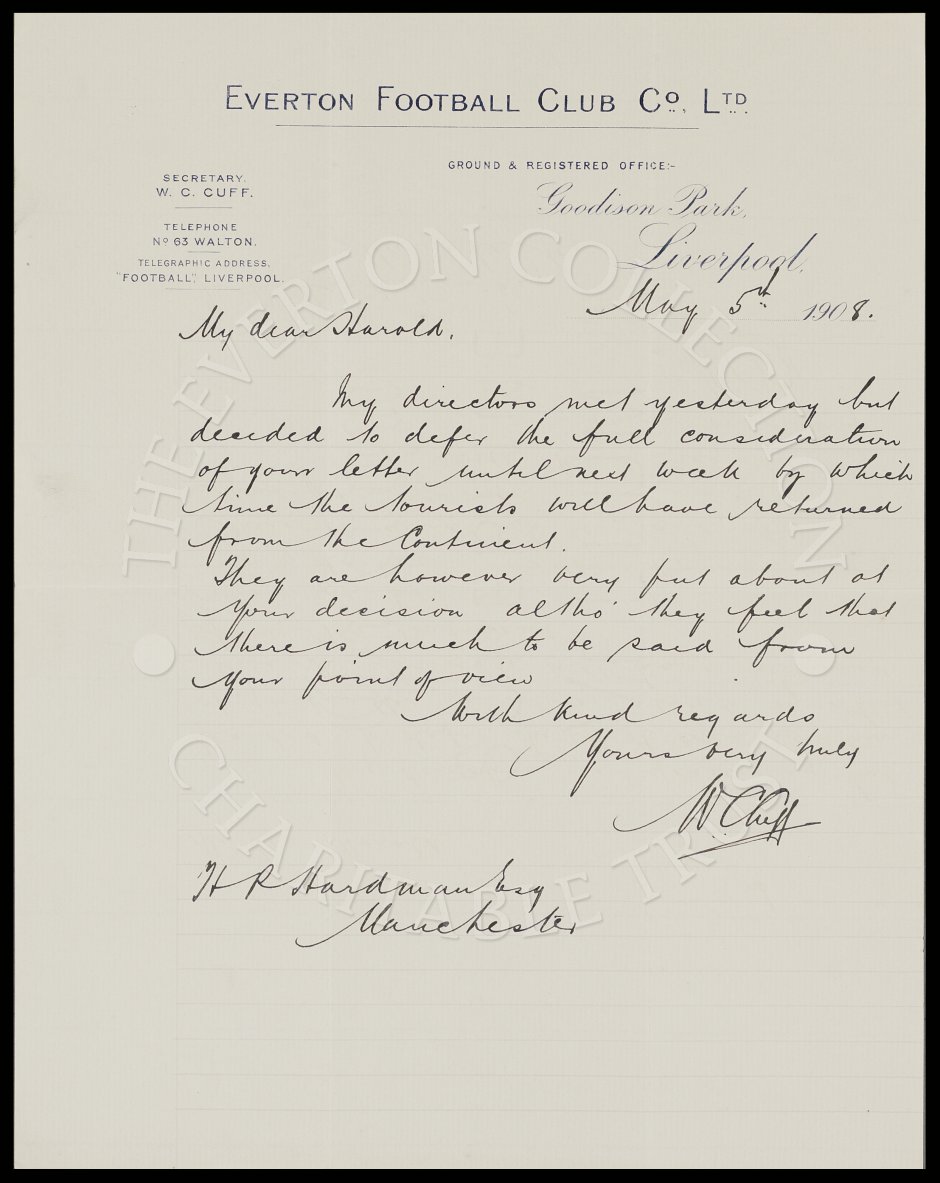 EVERTON FOOTBALL CLUB Co, LTD.
SECRETARY.
W. C. CUFF.
TELEPHONE
No 63 WALTON.
TELEGRAPHIC ADDRESS,
"FOOTBALL", LIVERPOOL.
GROUND & REGISTERED OFFICE:-
Goodison Park,
Liverpool,
May 5th 1908.
My dear Harold.
My directors met yesterday but
decided to defer the full consideration
of your letter until next week by which
time the tourists will have returned
from the Continent.
They are however very put about at
your decision altho' they feel that
there is much to be said from
your point of view
With kind regards
Yours very truly
W C Cuff
H P Hardman Esq
Manchester
THE EVERTON COLLECTION
CHARITABLE TRUST